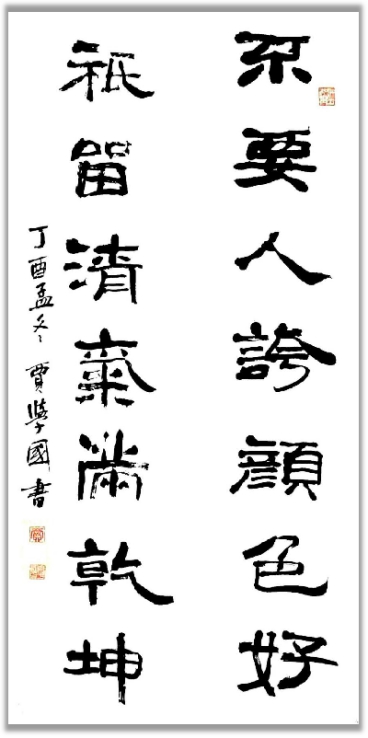 不要人誇顔色好
祇留清氣滿乾坤
丁酉孟冬賈學國書